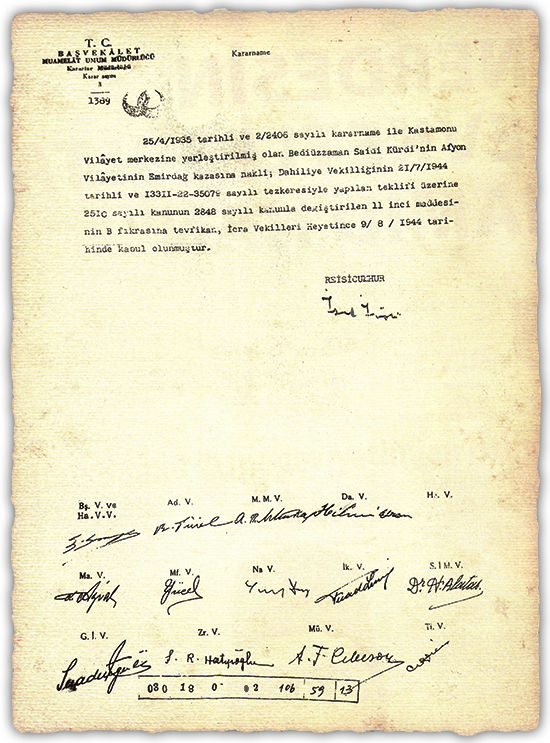 T. C.
BAŞVEKÂLET
MUAMELÂT UMUM MÜDÜRLÜĞÜ
Kararlar Müdürlüğü
Karar sayısı
3
1389
Kararname
25/4/1935 tarihli ve 2/2406 sayılı kararname ile Kastamonu
Vilâyet merkezine yerleştirilmiş olan Bediüzzaman Saidi Kürdi'nin Afyon
Vilâyetinin Emirdağ kazasına nakli; Dahiliye Vekilliğinin 21/7/1944
tarihli ve 13311-22-35079 sayılı tezkeresiyle yapılan teklifi üzerine
2510 sayılı kanunun 2848 sayılı kanunla değiştirilen 11 inci maddesi-
nin B fıkrasına tevfikan, İcra Vekilleri Heyetince 9/ 8 / 1944 tari-
hinde kabul olunmuştur.
REİSİCUMHUR
Bş. V. ve
Ha. V. V.
Ad. V.
M. M. V.
Da. V.
Ha. V.
Ma. V.
Mf. V.
Na V.
İk. V.
S. İ M. V.
Yücel
Dr. H. Alataş
G. İ. V.
Zr. V.
Mü. V.
Ti. V.
Ş. R. Hatipoğlu
A. F. Cebesoy
030 18 0 02 106 59 13